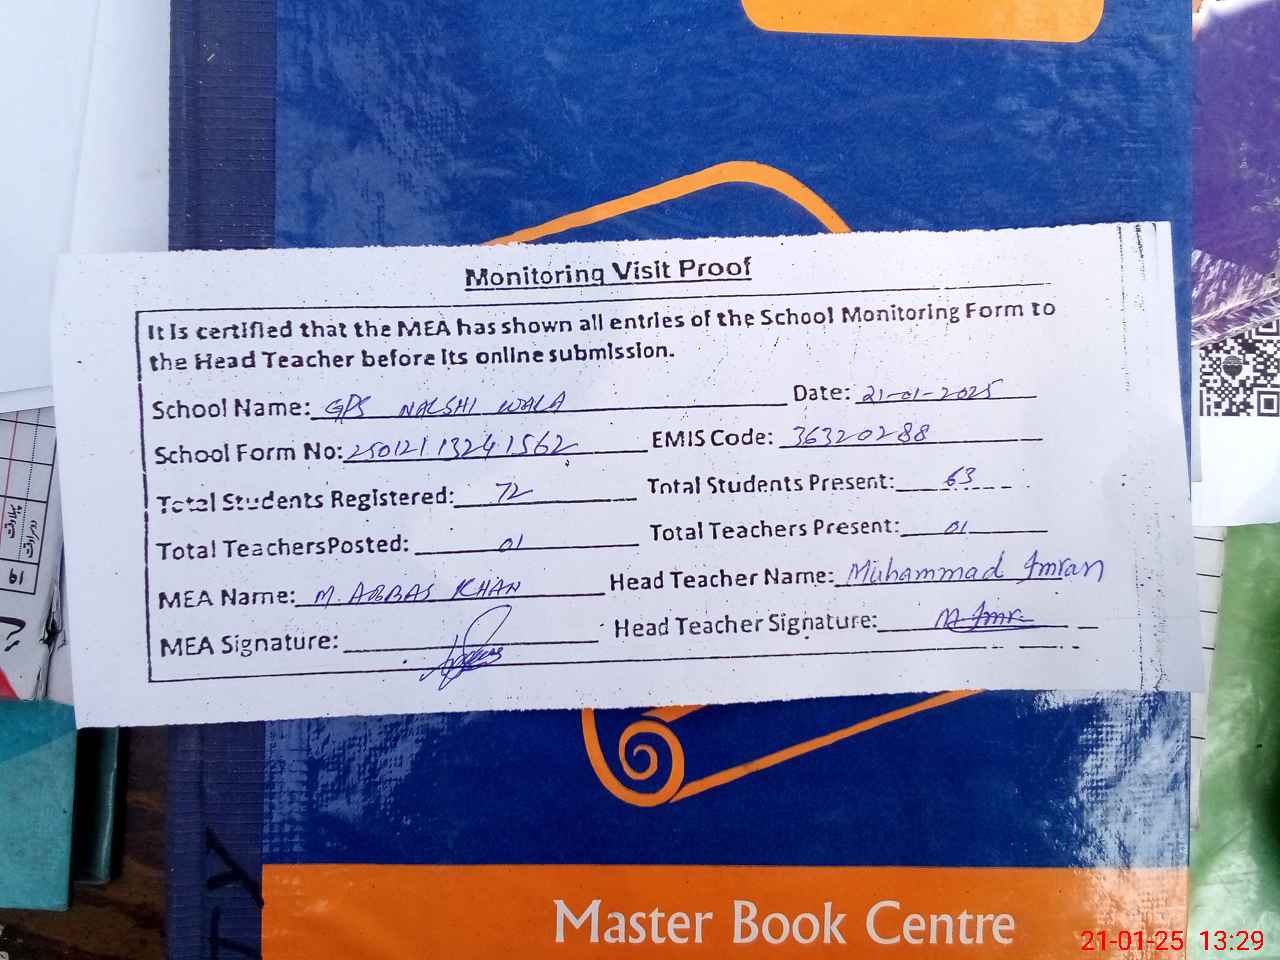 Monitoring Visit Proof
It is certified that the MEA has shown all entries of the School Monitoring Form to
the Head Teacher before its online submission.
School Name: GPS NALSHI WALA Date: 21-01-2025
School Form No: 25012113241562 EMIS Code: 36320288
Total Students Registered: 72 Total Students Present: 63
Total Teachers Posted: 01 Total Teachers Present: 01
MEA Name: M. ABBAS KHAN Head Teacher Name: Muhammad Imran
MEA Signature: Head Teacher Signature: M Imr
Master Book Centre
21-01-25 13:29